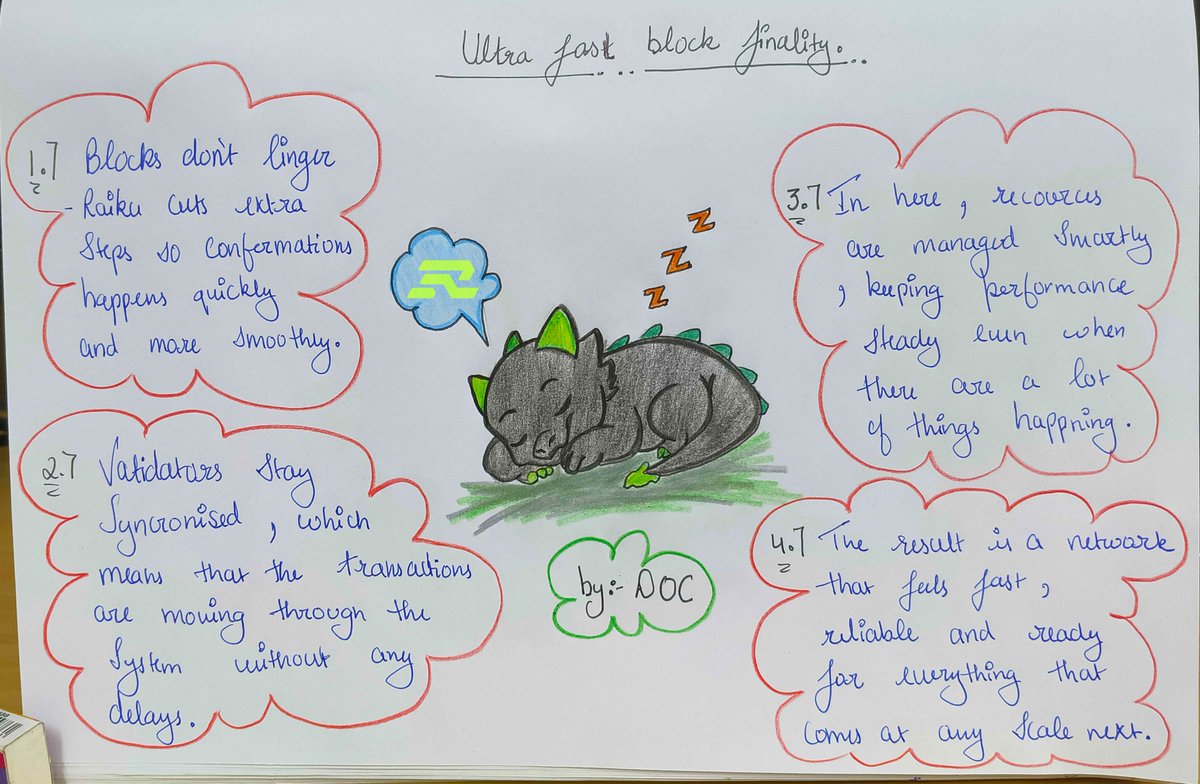 Ultra fast block finality.
1.7 Blocks don't linger
- Raiku cuts extra
Steps so confermations
happens quickly
and more smoothly.
2.7 Validators stay
Syncronised, which
means that the transactions
are moving through the
System without any
delays.
Z
Z
Z
by:- DOC
3.7 In here, recources
are managed smartly
, keeping performance
steady even when
there are a lot
of things happning.
4.7 The result is a network
that feels fast,
reliable and ready
for everything that
comes at any scale next.